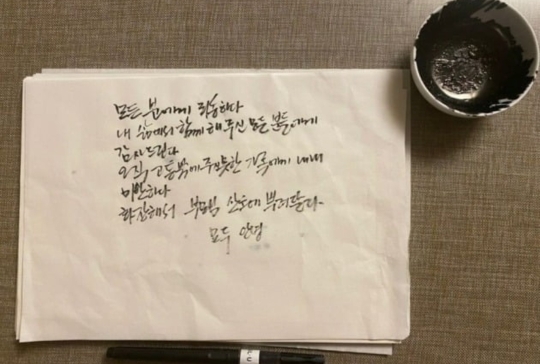 모든 분에게 죄송하다
내 삶에서 함께 해 주신 모든 분들에게
감사드린다
오직 고통밖에 주지못한 가족에게 내내
미안하다
화장해서 부모님 산소에 뿌려달라
모두 안녕